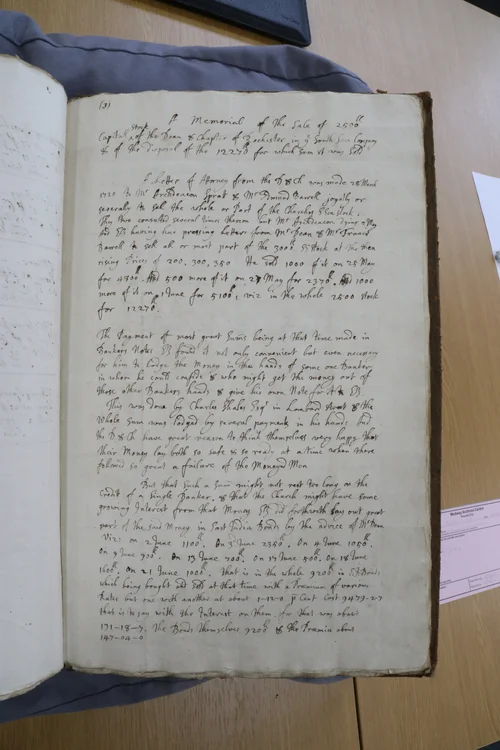 (3)
A Memorial of the Sale of 2500ˡᵇ
Capital Stock of the Dean & Chapter of Rochester, in yᵉ South Sea Company
& of the disposal of the 12270ˡᵇ for which Sum it was Sold
A Letter of Attorney from the D & Ch was made 28 March
1720 to Mʳ Archdeacon Sprat & Mʳ Edmund Barrell joyntly or
severaly to sell the whole or Part of the Churches S: Sea Stock.
They two consulted several times therein but Mʳ Archdeacon
having had pressing letters from Mʳ Dean & Mʳ
Barrell to sell all or most part of the 3000ˡᵇ SS Stock at the then
rising Prices of 200, 300, 350 He sold 1000 of it on 25 May
for 4800ˡᵇ And 500 more of it on 27 May for 2370ˡᵇ And 1000
more of it on 1 June for 5100ˡᵇ, viz in the whole 2500 Stock
for 12270ˡᵇ.
The Payment of most great Sums being at that time made in
Bankers Notes found it not only convenient but even necessary
for him to lodge the Money in the hands of some one Banker
in whom he could confide & who might get the money out of
those other Bankers hands & give his own Note for it to
This was done by Charles Shales Esqʳ in Lombard Street & the
Whole Sum was lodged by several payments in his hands. And
the D & Ch have great reason to think themselves very happy that
their Money lay both so safe & so ready at a time when there
followed so great a failure of the Moneyed Men
But that such a Sum might not rest too long on the
Credit of a Single Banker, & that the Church might have some
growing Interest from that Money did forthwith lay out great
part of the said Money in East India Bonds by the advice of Mʳ Dean
Viz: on 2 June 1100ˡᵇ. On 3 June 2350ˡᵇ. On 4 June 1050ˡᵇ.
On 9 June 900ˡᵇ. On 13 June 700ˡᵇ. On 17 June 500ˡᵇ. On 18 June
1600ˡᵇ. On 21 June 1000ˡᵇ. That is in the whole 9200ˡᵇ in Bonds
which being bought and sold at that time with a Praemium of various
Rates but one with another at about 1-12-0 p Cent Cost 9479-2-7
that is to say with the Interest on them, for that was about
131-18-7, the Bonds themselves 9200ˡᵇ & the Praemia about
147-04-0